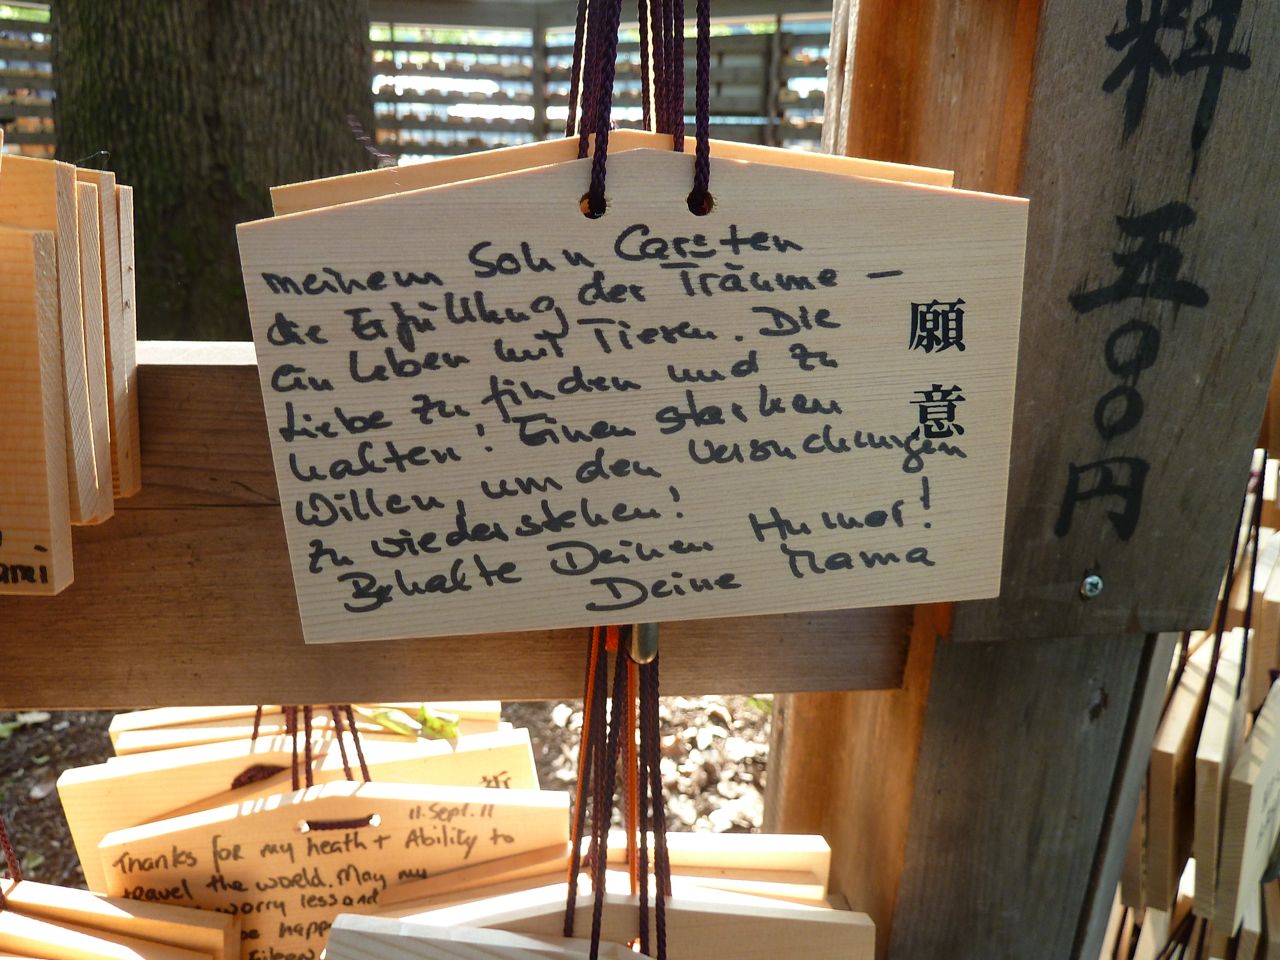 meinem Sohn Carsten
die Erfüllung der Träume –
ein Leben mit Tieren. Die
Liebe zu finden und zu
halten! Einen starken
Willen, um den Versuchungen
zu wiederstehen!
Behalte Deinen Humor!
Deine Mama
願意
料 五〇〇円
11. Sept. 11
Thanks for my heath + Ability to
travel the world. May my
worry less and
be happ
Eileen
祈